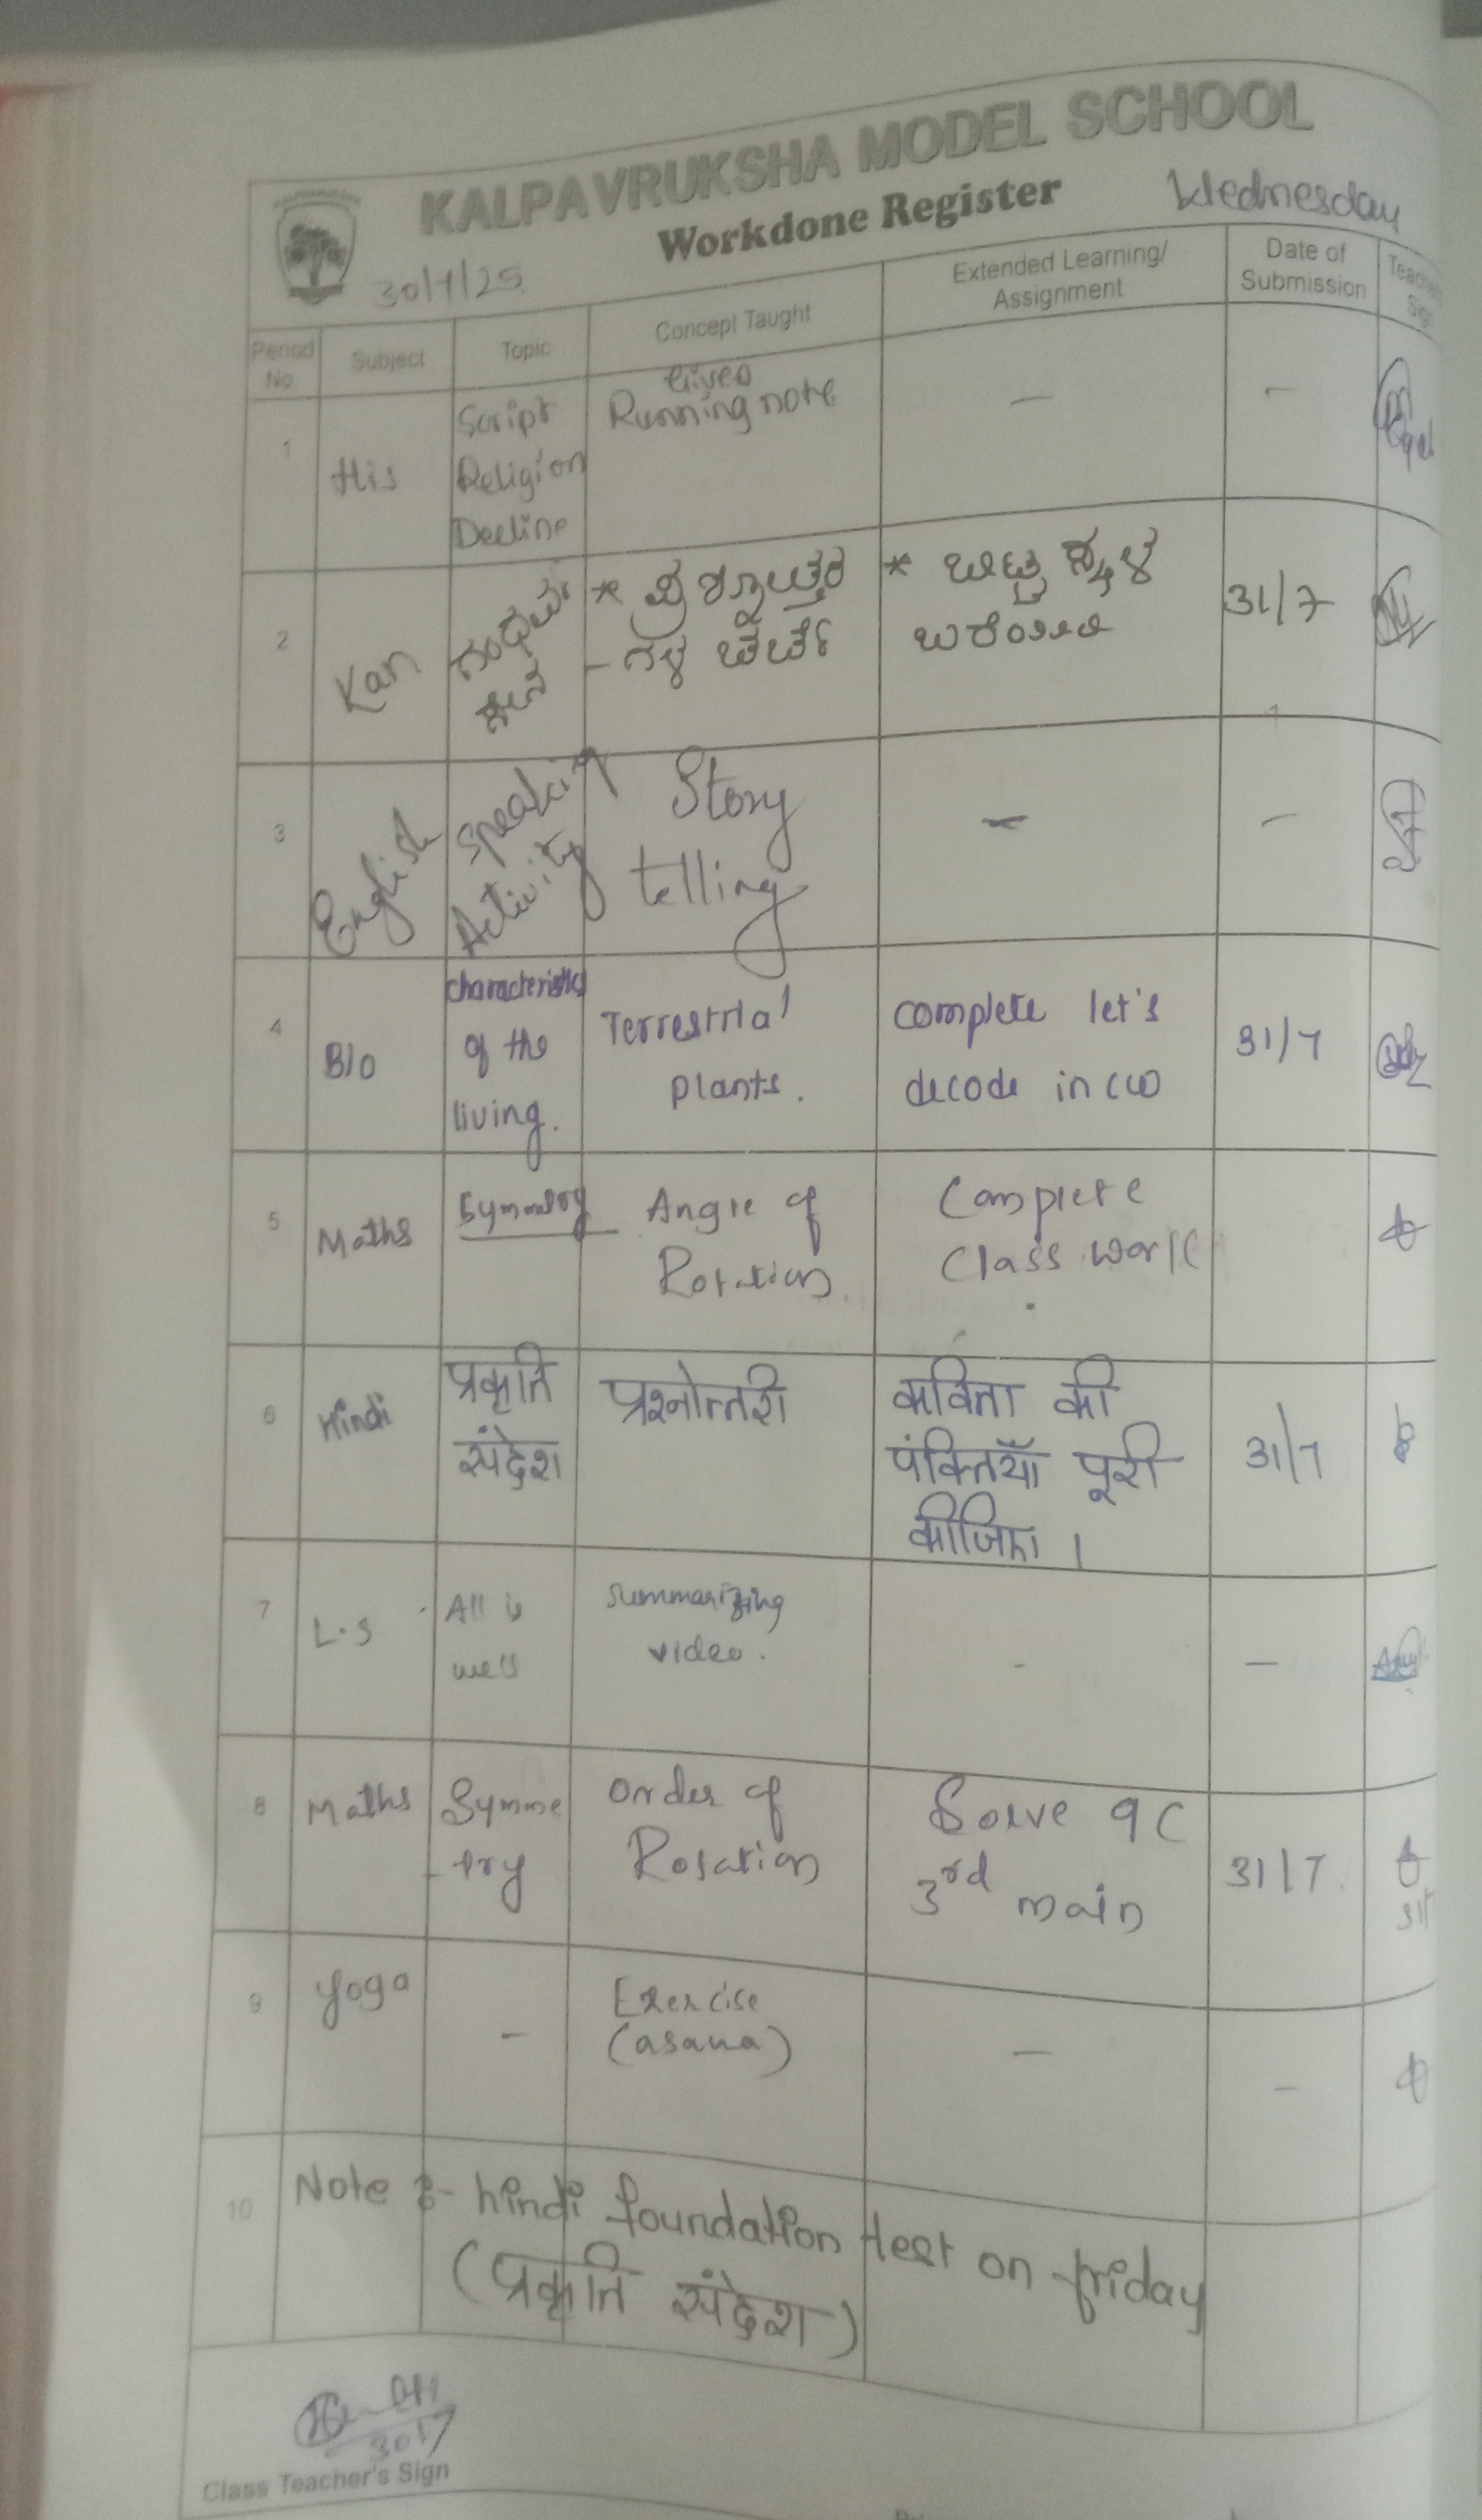 KALPAVRUKSHA MODEL SCHOOL
Workdone Register
Wednesday
30/7/25
Period No
Subject
Topic
Concept Taught
Extended Learning/ Assignment
Date of Submission
1
His
Script
Religion
Decline
Given
Running note
—
—
2
Kan
* ಪ್ರಶ್ನೋತ್ತರ
- ಗಳ ಚರ್ಚೆ
* ಬಿಟ್ಟ ಸ್ಥಳ
31/7
3
English
Speaking
Activity
Story
telling
—
—
4
Bio
characteristics
of the
living.
Terrestrial
plants.
complete let's
decode in CW
31/7
5
Maths
Symmetry
Angle of
Rotation
Complete
Class work
6
Hindi
प्रकृति
संदेश
प्रश्नोत्तरी
कविता की
पंक्तियाँ पूरी
कीजिए।
31/7
7
L.S
All is
well
summarizing
video.
-
—
8
Maths
Symme
-try
Order of
Rotation
Solve 9C
3rd main
31/7
9
Yoga
—
Exercise
(asana)
—
—
10
Note :- hindi foundation test on friday
(प्रकृति संदेश)
30/7
Class Teacher's Sign